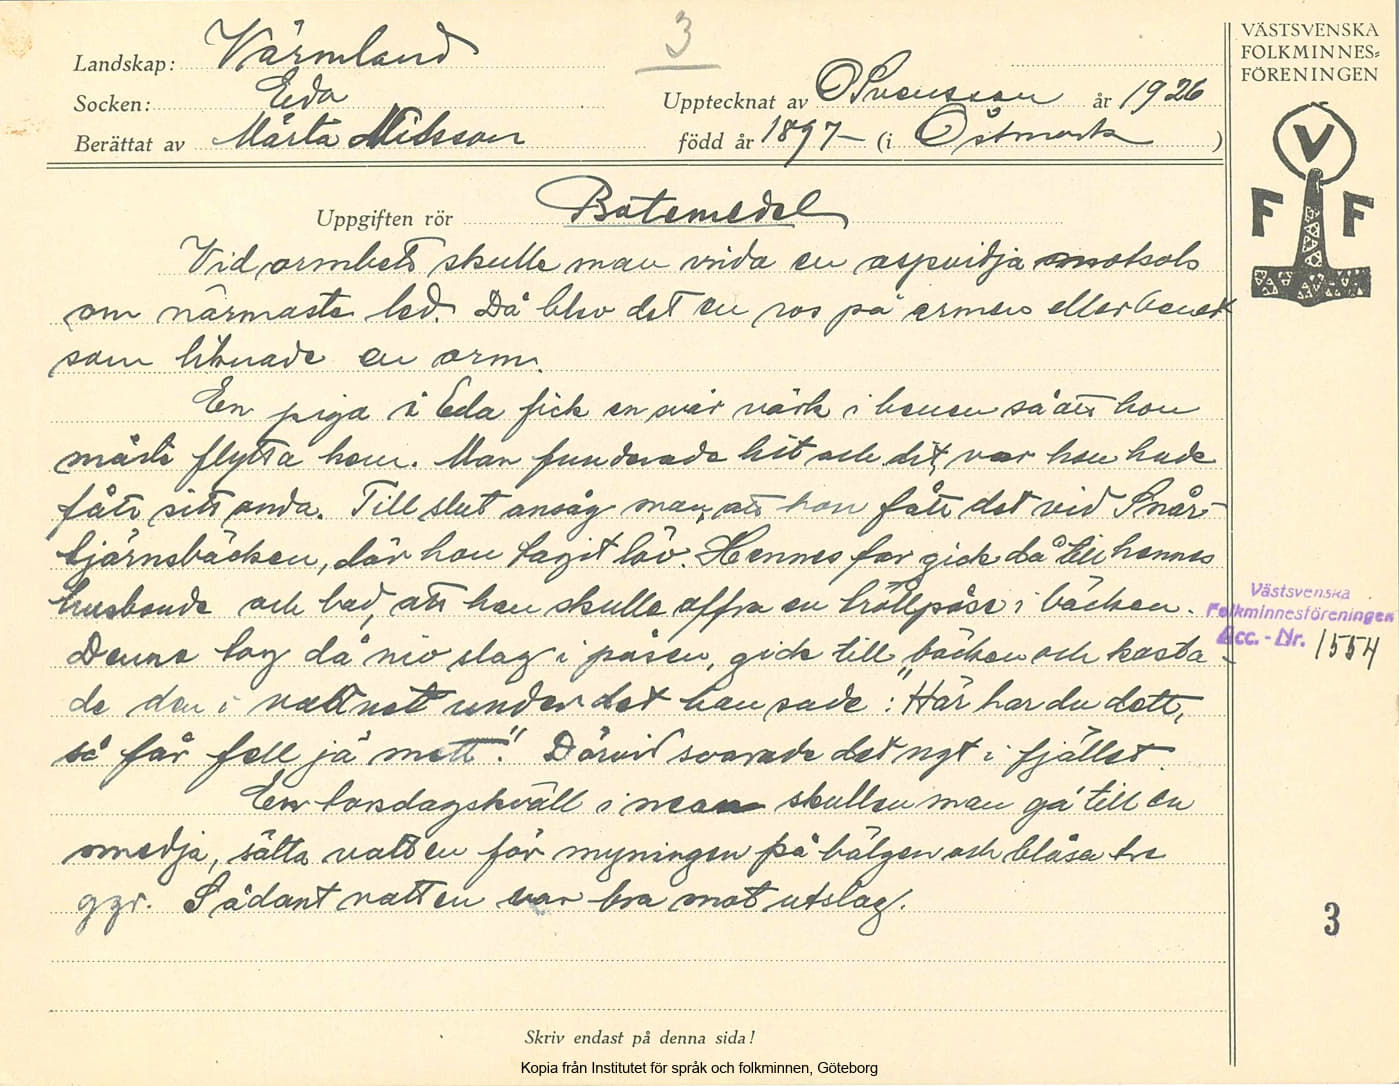 3
Landskap: Värmland
Socken: Eda
Berättat av Märta Nilsson
Upptecknat av O Svensson år 1926
född år 1897 (i Östmark )
VÄSTSVENSKA
FOLKMINNES-
FÖRENINGEN
V
F F
Uppgiften rör Botemedel
Vid ormbett skulle man vrida en aspvidja motsols
om närmaste led. Då blev det en ros på armen eller benet
som liknade en orm.
En piga i Eda fick en svår värk i benen så att hon
måste flytta hem. Man funderade hit och dit, var hon hade
fått sitt onda. Till slut ansåg man, att hon fått det vid Snår-
tjärnsbäcken, där hon tagit löv. Hennes far gick då till hennes
husbonde och bad, att han skulle offra en trollpåse i bäcken.
Denne tog då nio slag i påsen, gick till bäcken och kasta-
de den i vattnet under det han sade: "Här har du dett,
så får fell ja mett." Därvid svarade det nyt i fjället.
En torsdagskväll i skullen man gå till en
smedja, sätta vatten för myningen på bälgen och blåsa tre
ggr. Sådant vatten var bra mot utslag.
Västsvenska
Folkminnesföreningen
Acc. - Nr. 1554
3
Skriv endast på denna sida!
Kopia från Institutet för språk och folkminnen, Göteborg